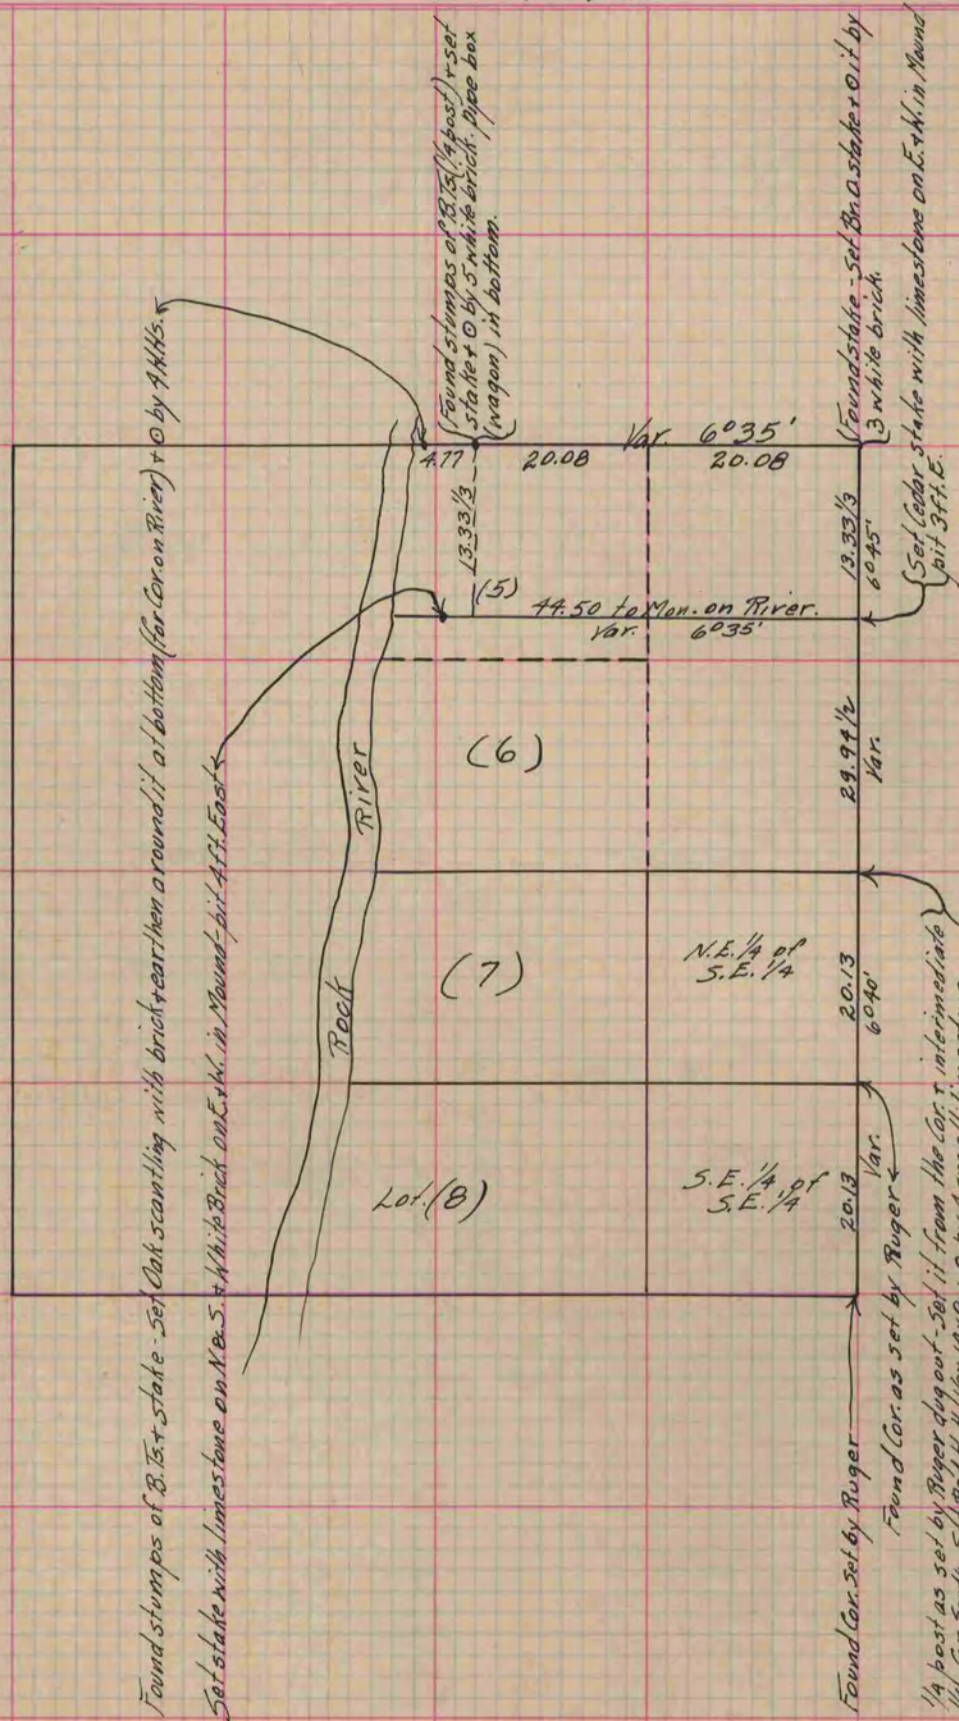 Found stumps of B.Ts. + stake - Set Oak scantling with brick + earthen around it at bottom (for Cor. on River) + ⊙ by 4 H.Hs.
Set stake with limestone on N. & S. + White Brick on E. + W. in Mound - pit 4 ft. East
(Found stumps of B.Ts. (1/4 post) + set
stake + ⊙ by 5 white brick. pipe box
(wagon) in bottom.
4.77
20.08
Var. 6°35'
20.08
(Found stake - Set Bn. O. stake + ⊙ it by
3 white brick.
13.33 1/3
13.33 1/3
6°45'
(Set Cedar stake with limestone on E. + W. in Mound
pit 3 ft. E.
(5)
44.50 to Mon. on River.
Var. 6°35'
(6)
29.94 1/2
Var.
River
Rock
(7)
N.E. 1/4 of
S.E. 1/4
20.13
6°40'
Lot. (8)
S.E. 1/4 of
S.E. 1/4
20.13
Var.
Found Cor. Set by Ruger
Found Cor. as set by Ruger
1/4 post as set by Ruger dug out - Set it from the Cor. + intermediate